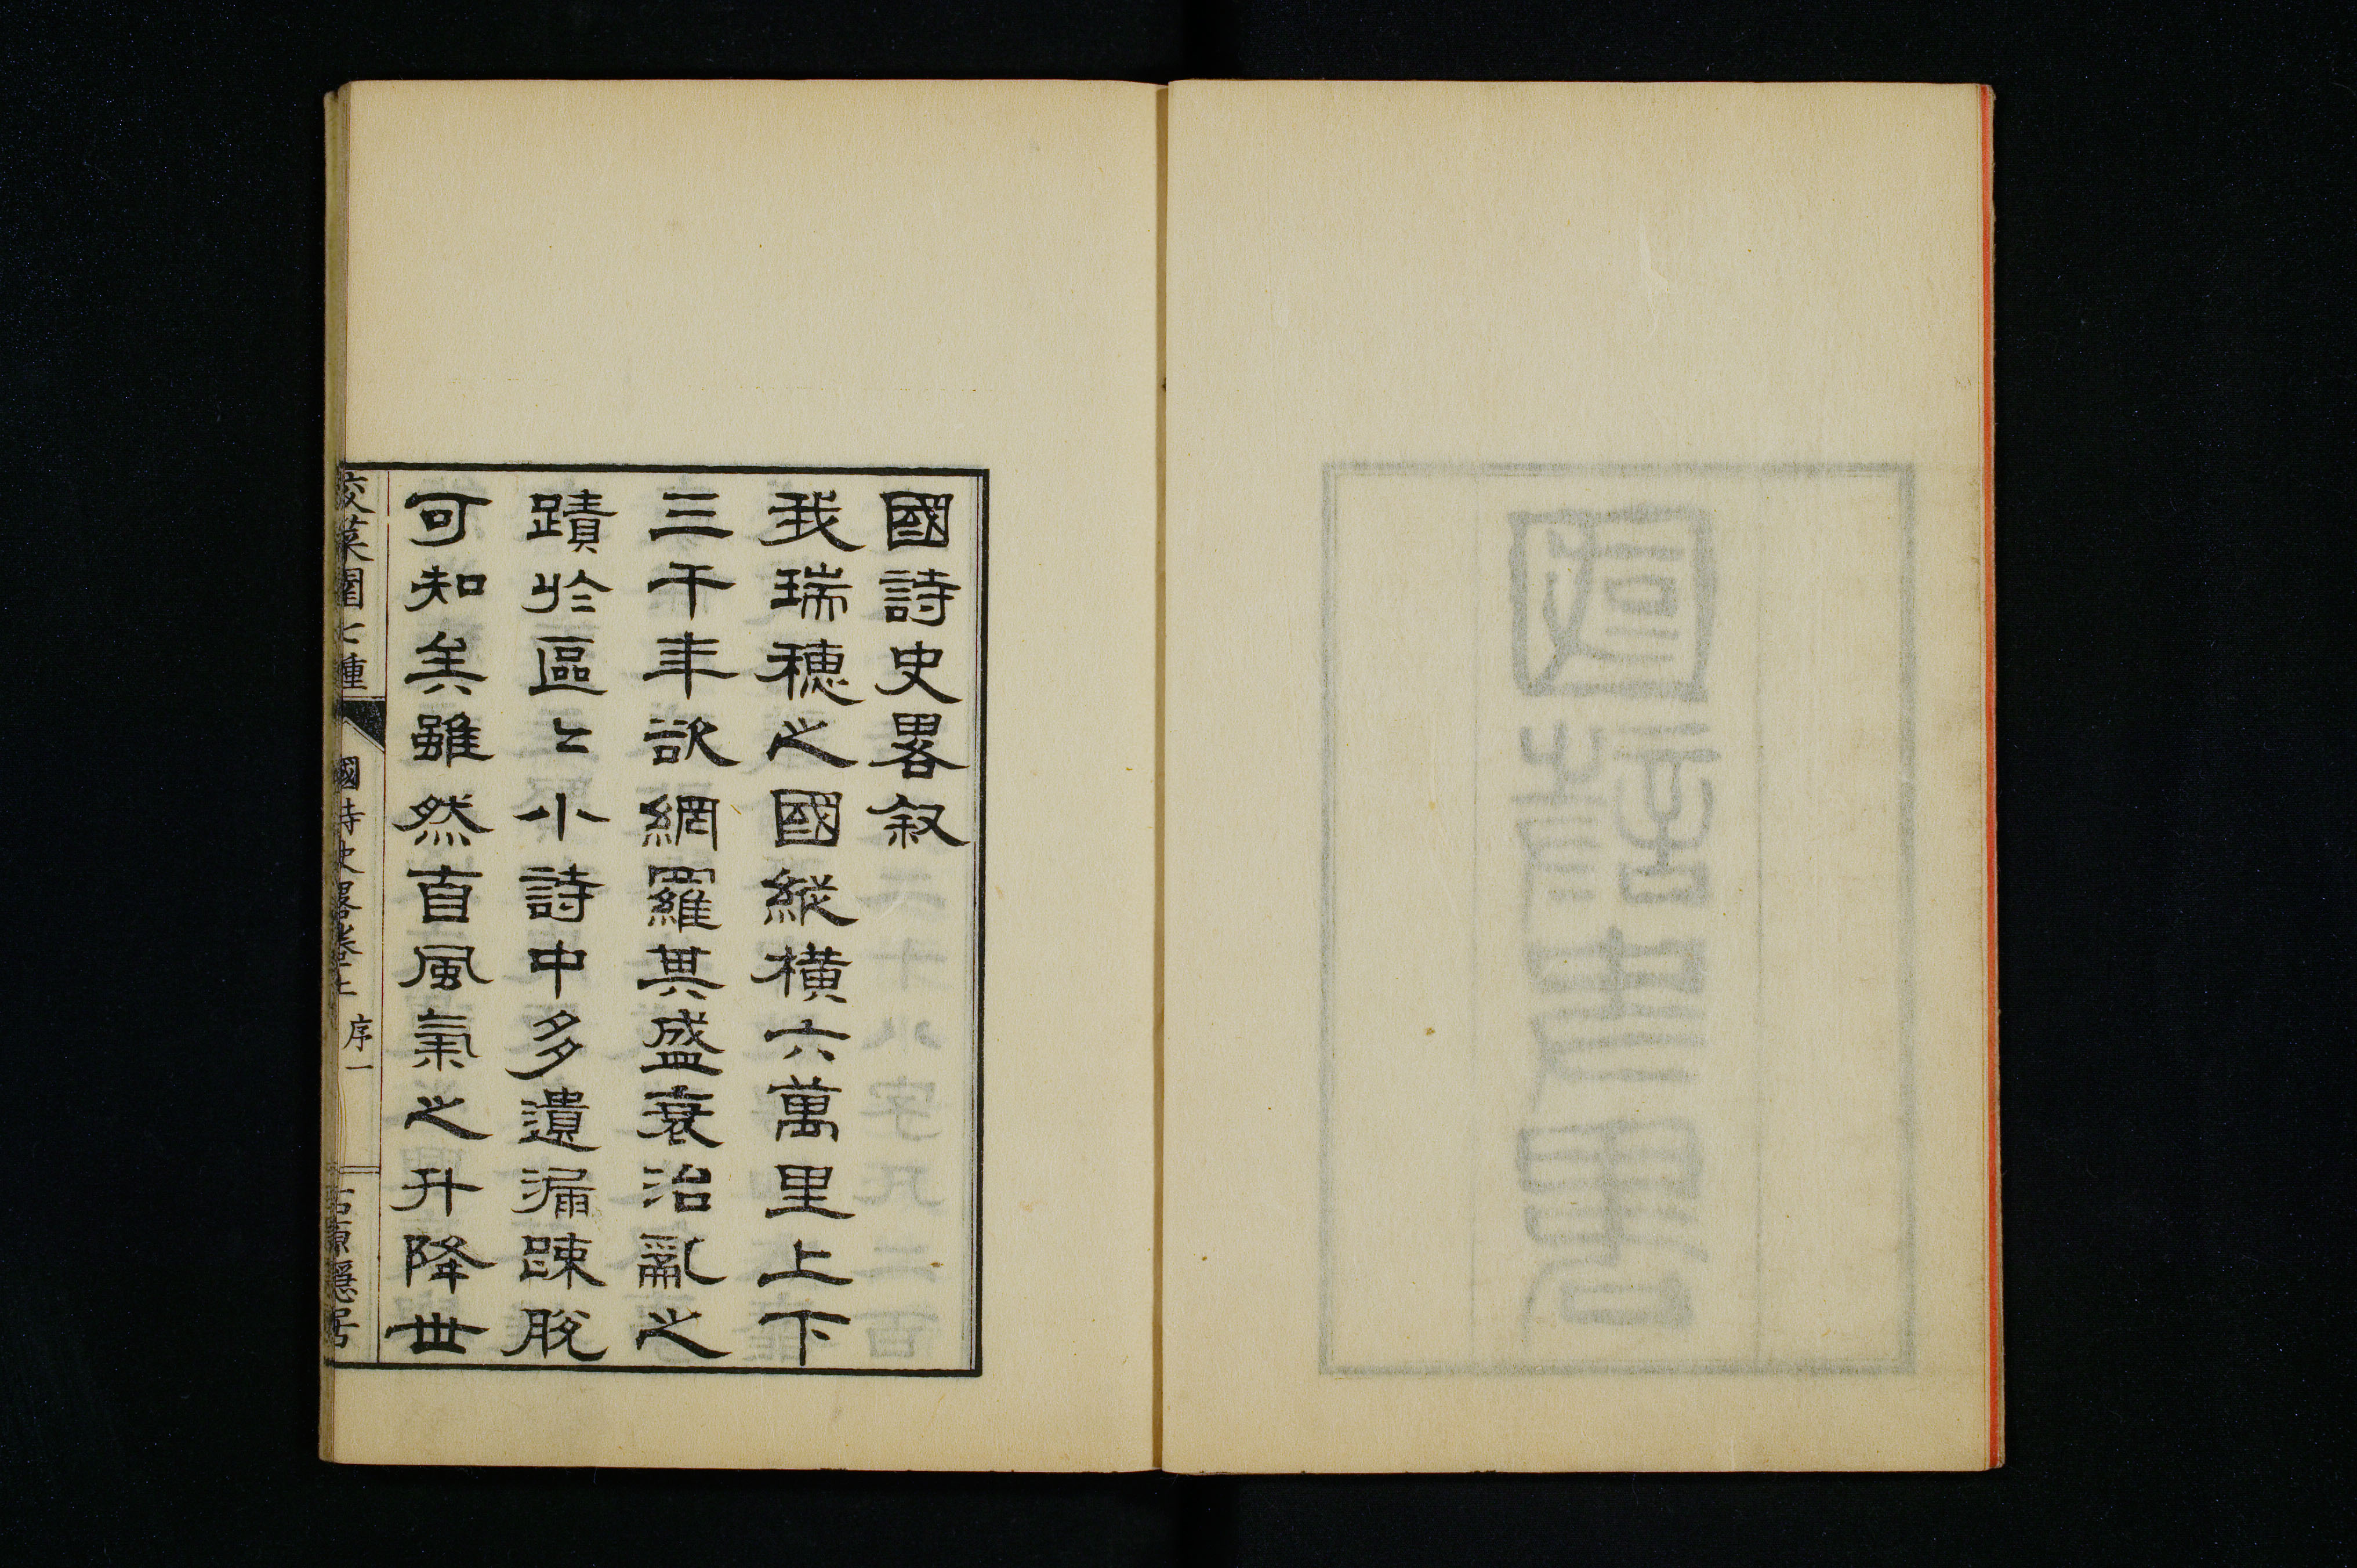 國詩史畧叙
我瑞穂之國縱橫六萬里上下
三千年欲網羅其盛衰治亂之
蹟於區〻小詩中多遺漏踈脱
可知矣雖然直風氣之升降世
國詩史畧卷上 序一